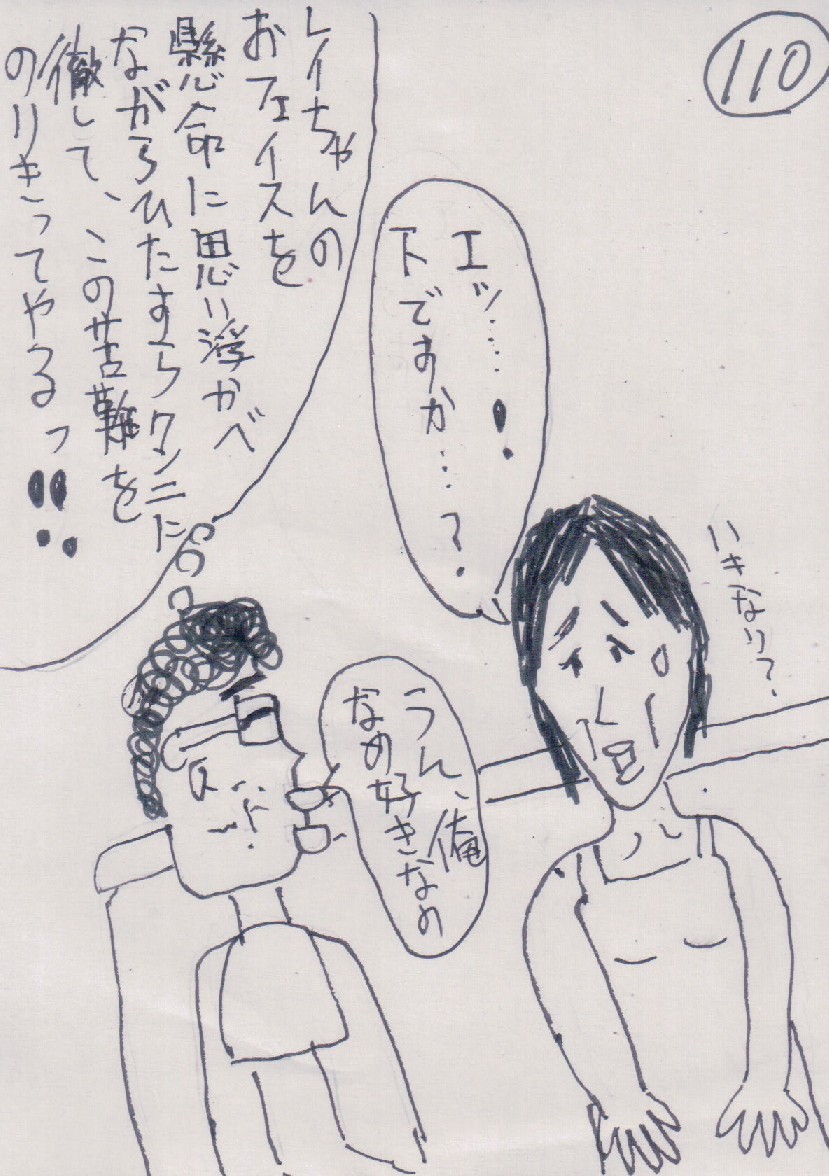 110
エッ……!
下ですか…?
いきなり?
うん、俺
なめ好きなの
レイちゃんの
おフェイスを
懸命に思い浮かべ
ながらひたすらタンニに
徹して、この苦難を
のりきってやるっ!!